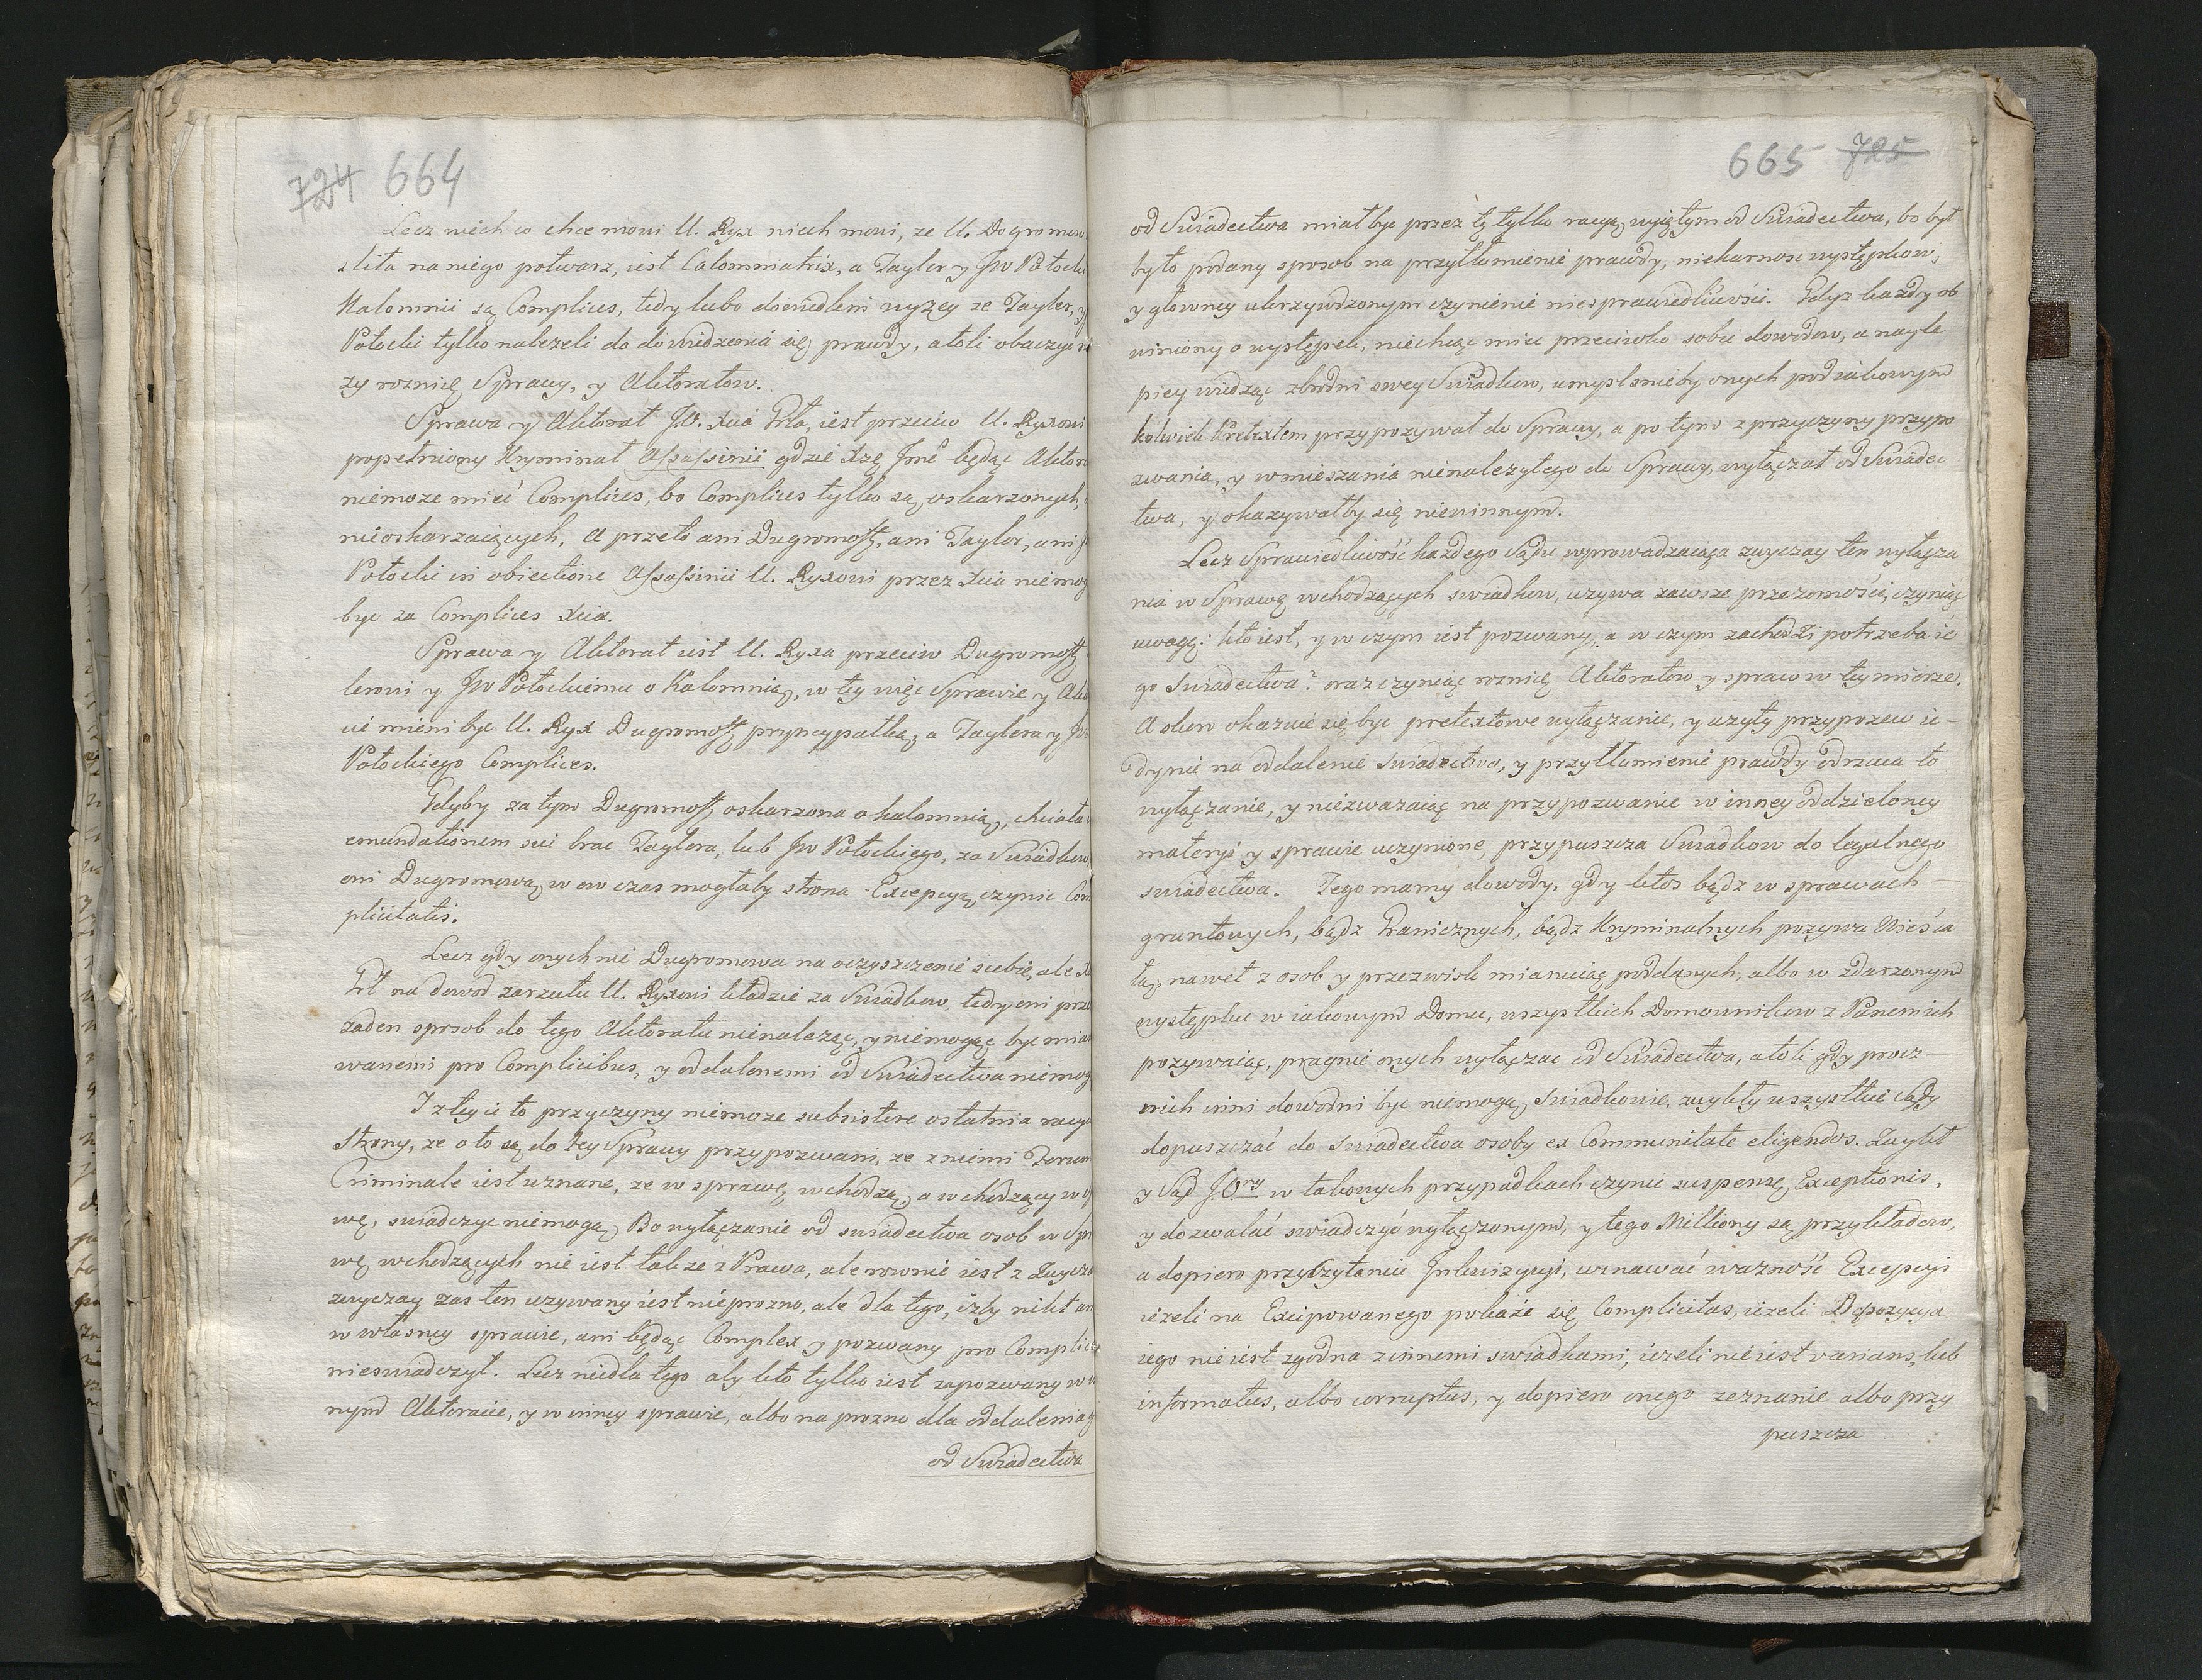 724 664
Lecz niech co chce mowi U. Ryx niech mowi, ze U. Dogromow
slita na niego potwarz, iest Calomniatrix, a Tayler y JW Potocki
Kalomnii są Complices, tedy lubo dowiedlem wyzey ze Tayler, y
Potocki tylko nalezeli do dowiedzenia się prawdy, atoli obaczyc
zy roznicę Sprawy, y Aktoratow.
Sprawa y Aktorat J.O. Xcia Grła, iest przeciw U. Ryxowi
popełniony Kryminał Assassinii gdzie Xzę Jmć będąc Aktore
niemoze mieć Complices, bo Complices tylko są oskarzonych,
nieoskarzaiących, A przeto ani Dugromoff, ani Taylor, ani
Potocki in obiectione Assassinii U. Ryxowi przez Xcia niemog
byc za Complices Xcia.
Sprawa y Aktorat iest U. Ryxa przeciw Dugromoff
lerowi y JW Potockiemu o Kalomnią, w tey więc Sprawie y Akt
cie mieni byc U. Ryx Dugromoff pryncypałką, a Taylera y JW
Potockiego Complices.
Gdyby za tym Dugromoff oskarzona o kalomnią, chciała
emundationem sui brac Taylora, lub JW Potockiego, za Swiadkow
oni Dugromową, w ow czas mogłaby strona Excepcyą czynic Com
plicitatis.
Lecz gdy onych nie Dugromowa na oczyszczenie siebie, ale X
Grł na dowod zarzutu U. Ryxowi kładzie za Swiadkow, tedy oni prze
zaden sposob do tego Aktoratu nienaleząc, y niemogąc byc mia
wanemi pro Complicibus, y oddalonemi od Swiadectwa niemog
I z tey ie to przyczyny niemoze subsistere ostatnia racya
Strony, ze oto są do tey Sprawy przypozwani, ze z niemi Forum
Criminale iest uznane, ze w sprawę wchodzą, a wchodzący w
wę, swiadczyc niemogą, Bo wyłączanie od swiadectwa osob w Spr
wę wchodzących nie iest takze z Prawa, ale rownie iest z Zwycza
zwyczay zas ten uzywany iest nieprozno, ale dla tego, izby nikt an
w własney sprawie, ani będąc Complex y pozwany pro Complice
nieswiadczył. Lecz niedla tego aby kto tylko iest zapozwany w
nym Aktoracie, y w inney sprawie, albo na prozno dla oddalenia
od Swiadectwa
665 725
od Swiadectwa miał byc przez tę tylko racyą wyiętym od Swiadectwa, bo był
by to podany sposob na przytłumienie prawdy, niekarnosc występkow,
y głowney ukrzywdzonym czynienie niesprawiedliwości. Gdyz kazdy ob
winiony o występek, niechcąc miec przeciwko sobie dowodow, a nayle
piey wiedząc zbrodni swey Swiadkow, umyslnieby onych pod iakowym
kolwiek Pretextem przypozywał do Sprawy, a po tym z przyczyny przypo
zwania, y wmieszania nienalezytego do Sprawy, wyłączał od Swiadec
twa, y okazywałby się niewinnym.
Lecz Sprawiedliwość kazdego Sądu wprowadzaiąca zwyczay ten wyłącza
nia w Sprawę wchodzących swiadkow, uzywa zawsze przezorności, czyniąc
uwagę: kto iest, y w czym iest pozwany, a w czym zachodzi potrzeba ie
go swiadectwa? oraz czyniąc roznicę Aktoratow y spraw w tey mierze.
A skoro okazuie się byc pretextowe wyłączanie, y uzyty przypozew ie-
dynie na oddalenie swiadectwa, y przytłumienie prawdy odrzuca to
wyłączanie, y niezwazaiąc na przypozwanie w inney oddzieloney
materyi y sprawie uczynione, przypuszcza Swiadkow do legalnego
swiadectwa. Tego mamy dowody, gdy ktos bądz w sprawach
gruntowych, bądz Granicznych, bądz Kryminalnych pozywa Wieś ca
łą, nawet z osob y przezwisk mianuiąc poddanych, albo w zdarzonym
występku w iakowym Domu, wszystkich Domownikow z Panem ich
pozywaiąc, pragnie onych wyłączac od Swiadectwa, atoli gdy procz
nich inni dowodni byc niemogą Swiadkowie, zwykły wszystkie Sądy
dopuszczać do swiadectwa osoby ex Communitate eligendos. Zwykł
y Sąd J.O.ry w takowych przypadkach czynic suspensę Exceptionis,
y dozwalać swiadczyć wyłączonym, y tego Milliony są przykładow,
a dopiero przy czytaniu Inkwizycyi, uznawać wazność Excepcyi
iezeli na Excipowanego pokaże się Complicitas, iezeli Depozycya
iego nie iest zgodna z innemi swiadkami, iezeli nie iest varians, lub
informatus, albo corruptus, y dopiero onego zeznanie albo przy
puszcza